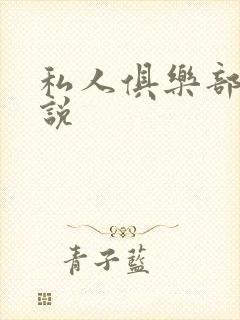 私人俱樂部
說
青子藍